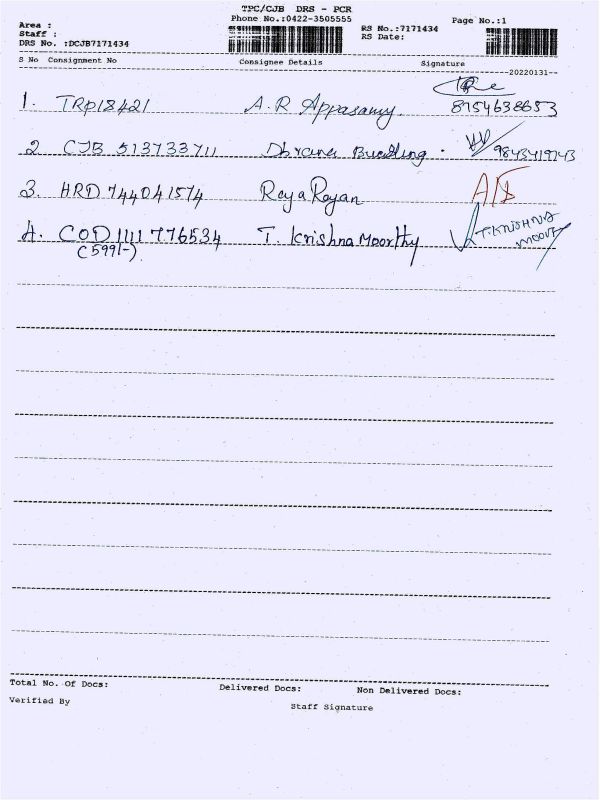 TPC/CJB DRS - PCR
Area : Phone No.:0422-3505555 Page No.:1
Staff : RS No.:7171434
DRS No. :DCJB7171434 RS Date:
S No Consignment No Consignee Details Signature
20220131
1. TRP18421 A.R Appasamy. 8754638653
2 CJB 513733711 9843419743
3. HRD 744041574 Raya Rayan
4. COD 1111 776534 T. Krishna Moorthy T.KRISHNA
(599/-)
Total No. Of Docs: Delivered Docs: Non Delivered Docs:
Verified By Staff Signature